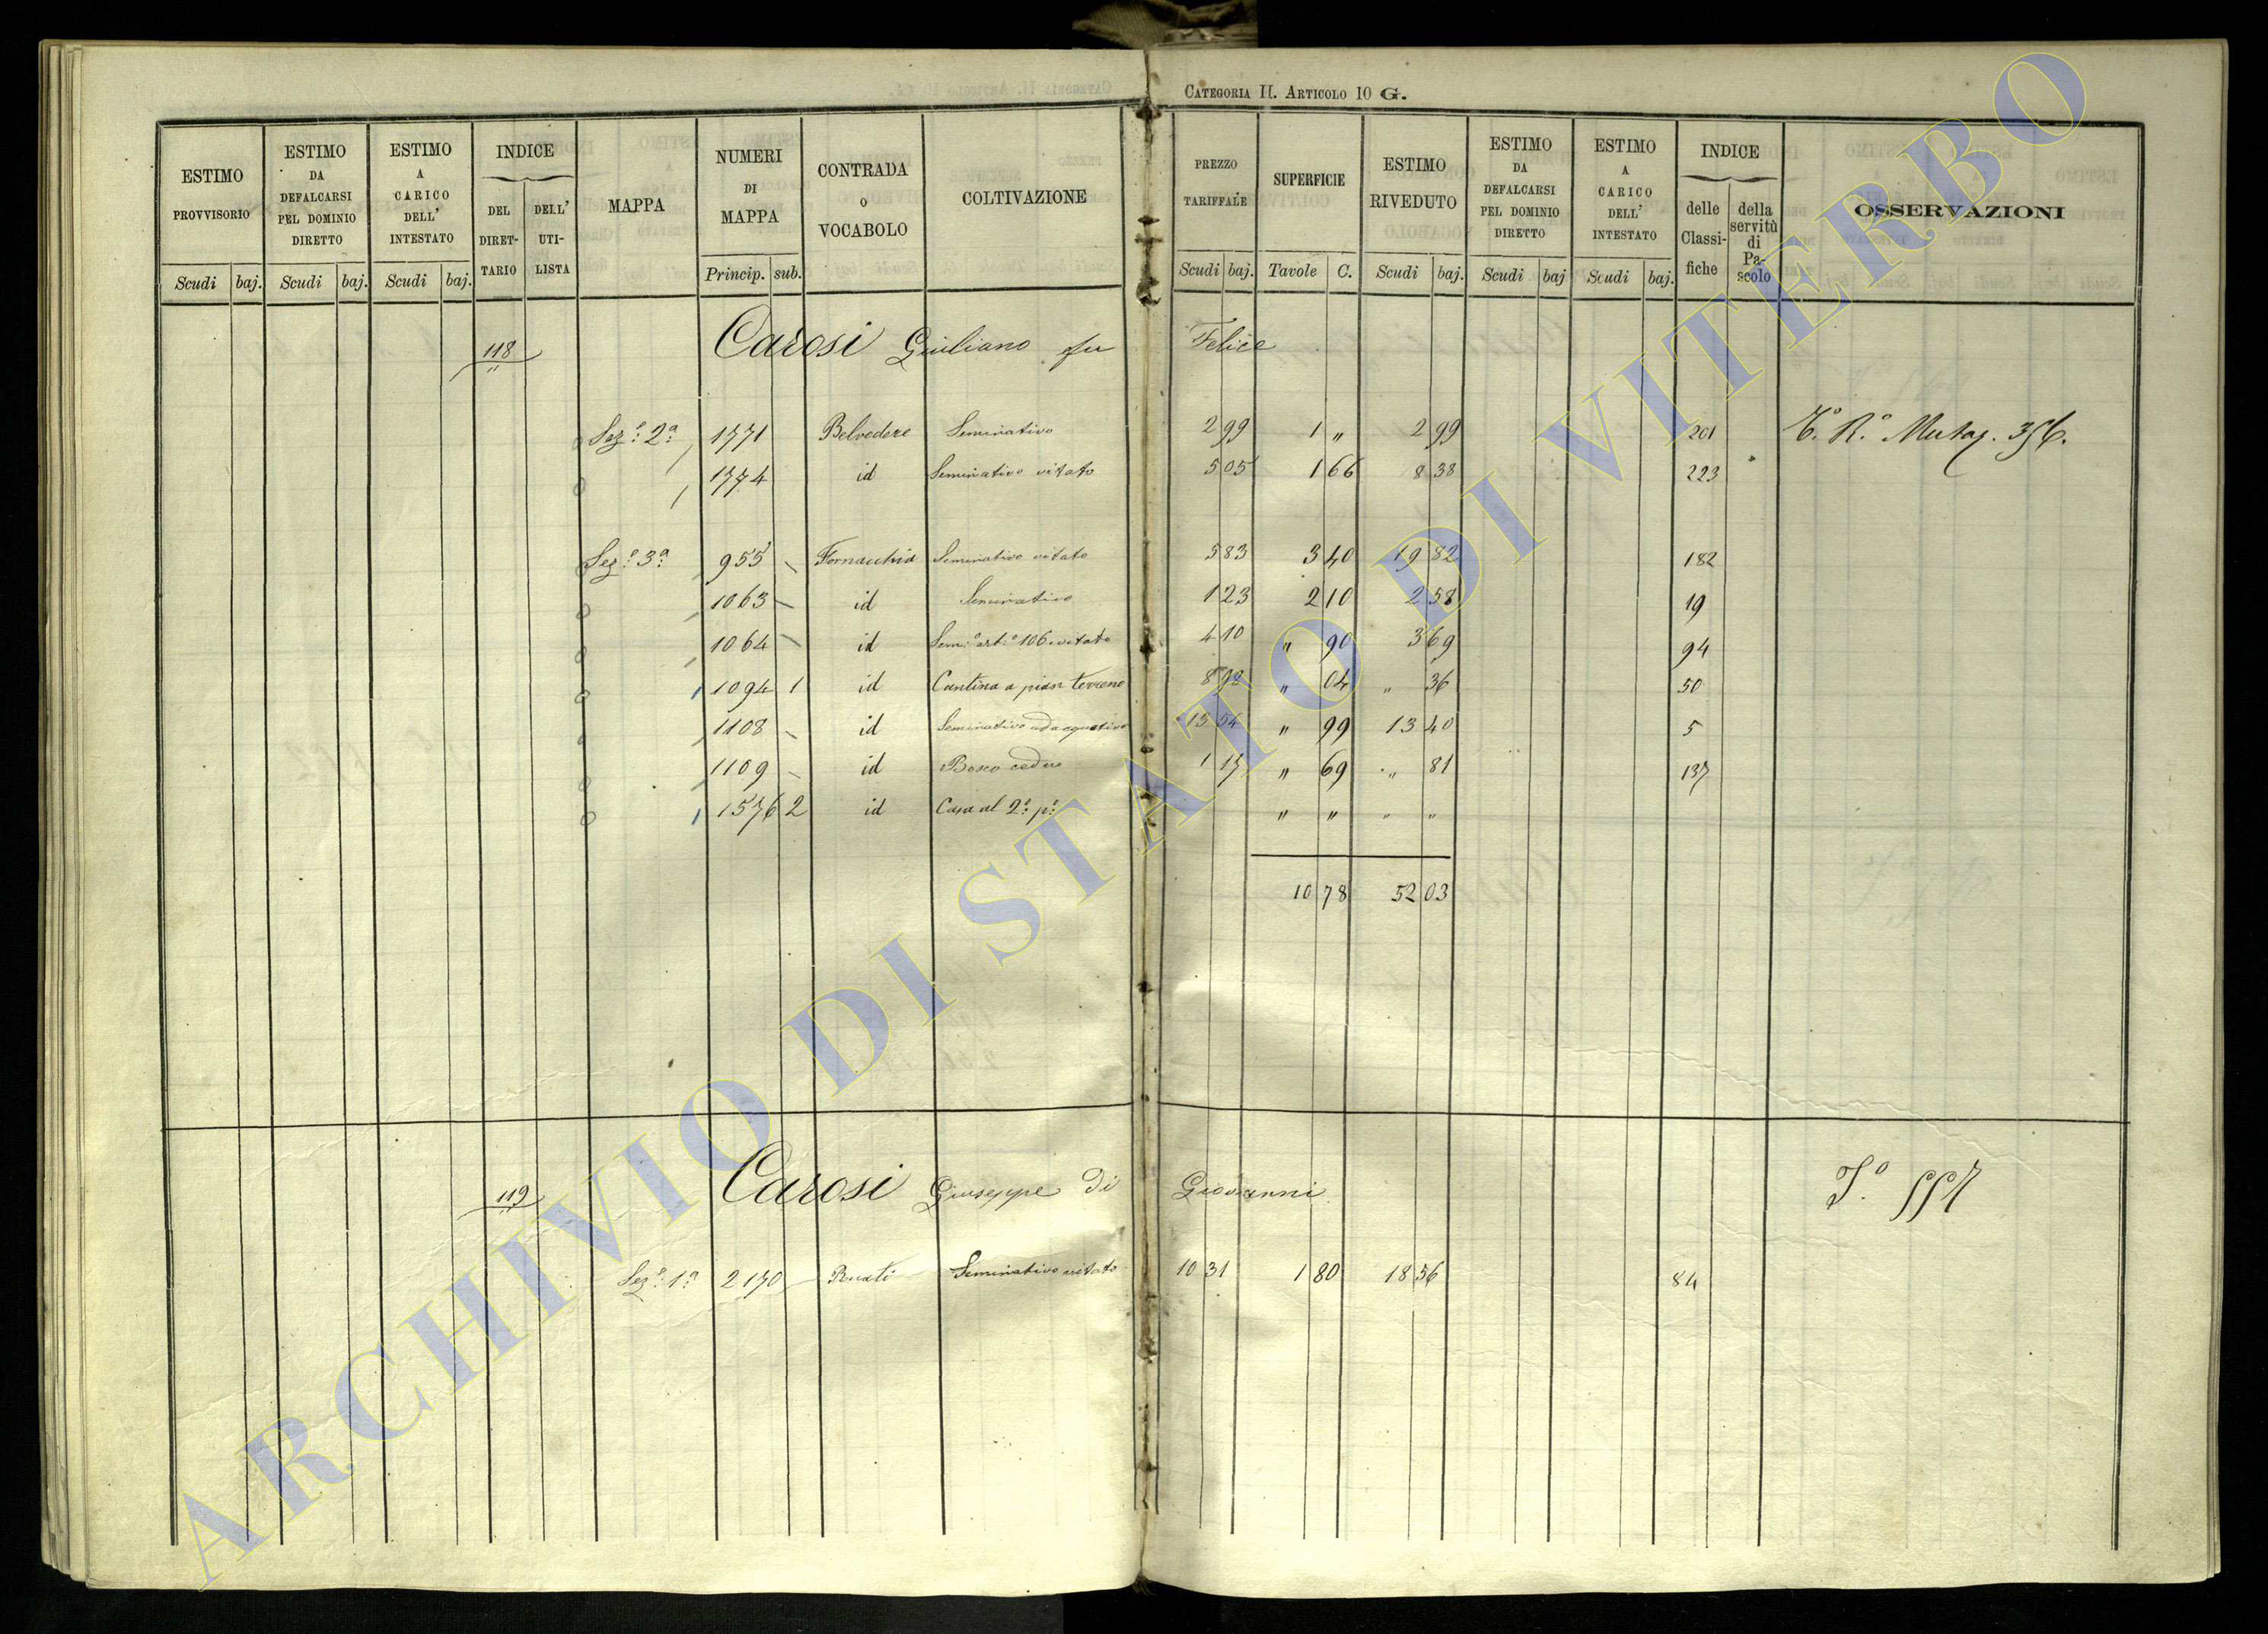 CATEGORIA II. ARTICOLO 10 G.
ESTIMO PROVVISORIO Scudi baj. ESTIMO DA DEFALCARSI PEL DOMINIO DIRETTO Scudi baj. ESTIMO A CARICO DELL' INTESTATO Scudi baj. INDICE DEL DIRETTARIO DELL' UTILISTA MAPPA NUMERI DI MAPPA Princip. sub. CONTRADA O VOCABOLO COLTIVAZIONE PREZZO TARIFFALE Scudi baj. SUPERFICIE Tavole C. ESTIMO RIVEDUTO Scudi baj. ESTIMO DA DEFALCARSI PEL DOMINIO DIRETTO Scudi baj ESTIMO A CARICO DELL' INTESTATO Scudi baj. INDICE delle Classifiche della servitù di Pascolo OSSERVAZIONI
118 Carosi Giuliano fu Felice
Sez.e 2.a 1771 Belvedere Seminativo 2 99 1 " 2 99 201 Mutaz.
1774 id Seminativo vitato 5 05 1 66 8 38 223
Sez.e 3.a 955 Fornacchia Seminativo vitato 5 83 3 40 19 82 182
1063 id Seminativo 1 23 2 10 2 58 19
1064 id Sem.o arb.o 106 vitato 4 10 " 90 3 69 94
1094 1 id Cantina a pian terreno " 04 " 36 50
1108 id Seminativo adacquativo 13 54 " 99 13 40 5
1109 id Bosco ceduo 1 17 " 69 " 81 137
1576 2 id Casa al 2.o p.o " " " "
10 78 52 03
119 Carosi Giuseppe di Giovanni
Sez.e 1.a 2170 Ruati Seminativo vitato 10 31 1 80 18 56 84
ARCHIVIO DI STATO DI VITERBO